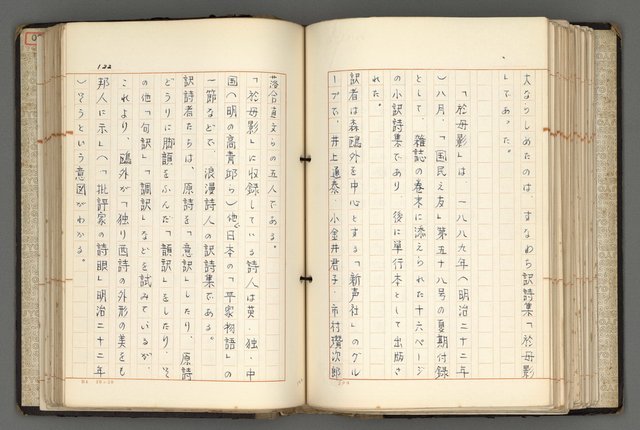 大ならしめたのは、すなわち訳詩集「於母影
」であった。
「於母影」は、一八八九年(明治二十二年
)八月、「国民之友」第五十八号の夏期付録
として、雑誌の巻末に添えられた十六ページ
の小訳詩集であり、後に単行本として出版さ
れた。
訳者は森鴎外を中心とする「新声社」のグル
ープで、井上通泰、小金井君子、市村瓚次郎
122
落合直文らの五人である。
「於母影」に収録している詩人は英・独・中
国(明の高青邱ら)他、日本の「平家物語」の
一節などで、浪漫詩人の訳詩集である。
訳詩者たちは、原詩を「意訳」したり、原詩
どうりに脚韻をふんだ「韻訳」をしたり、そ
の他「句訳」「調訳」などを試みているが、
これより、鴎外が「独り西詩の外形の美をも
邦人に示」へ「批評家の詩眼」明治二十二年
)そうという意図がわかる。